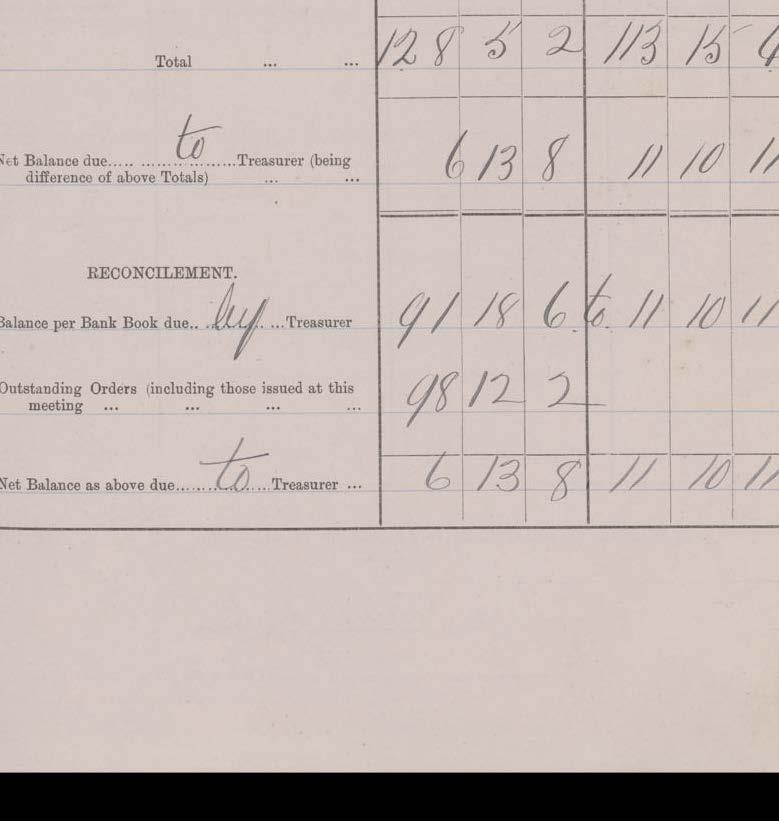 Total ... ... 128 5 2 113 15 4
Net Balance due..... to ...........Treasurer (being
difference of above Totals) ... ... 6 13 8 11 10 11
RECONCILEMENT.
Balance per Bank Book due.. by ...Treasurer 91 18 6 to 11 10 11
Outstanding Orders (including those issued at this
meeting ... ... ... ... 98 12 2
Net Balance as above due...... to ....Treasurer ... 6 13 8 11 10 11